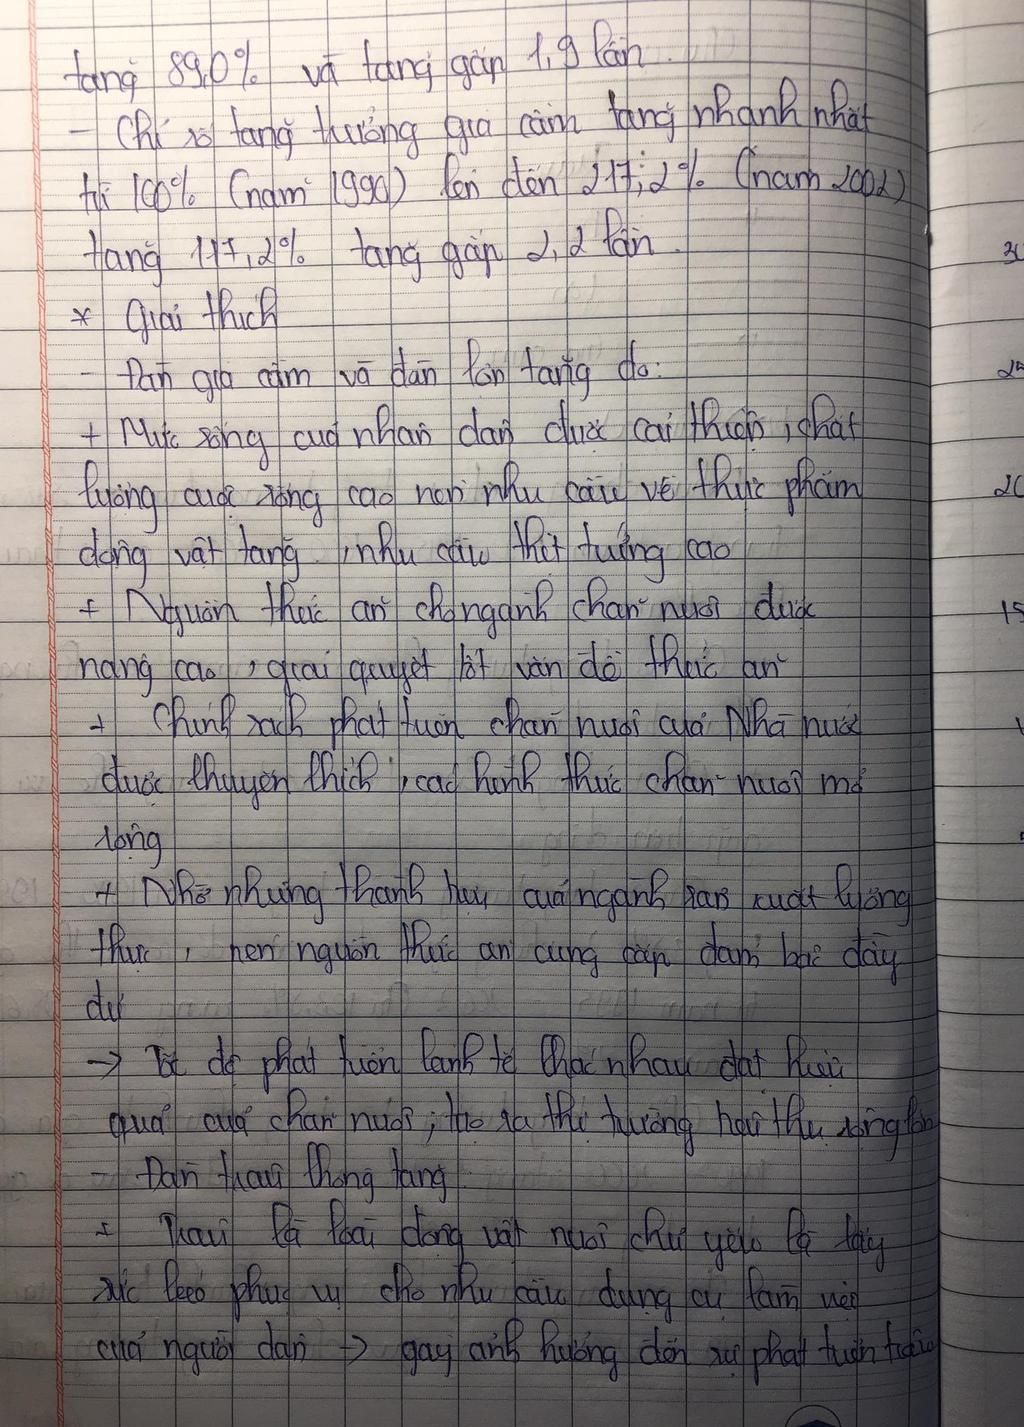 tăng 89,0% và tăng gấp 1,9 lần.
- Chỉ số tăng trưởng gia cầm tăng nhanh nhất
từ 100% (năm 1990) lên đến 217,2% (năm 2002)
tăng 117,2% tăng gấp 2,2 lần.
* Giải thích
- Đàn gia cầm và đàn lợn tăng do:
+ Mức sống của nhân dân được cải thiện, chất
lượng cuộc sống cao nên nhu cầu về thực phẩm
động vật tăng, nhu cầu thịt trường cao
+ Nguồn thức ăn cho ngành chăn nuôi được
nâng cao, giải quyết tốt vấn đề thức ăn
+ Chính sách phát triển chăn nuôi của Nhà nước
được khuyến khích, các hình thức chăn nuôi mở
rộng
+ Nhờ những thành tựu của ngành sản xuất lương
thực, nên nguồn thức ăn cung cấp đảm bảo đầy
đủ
→ để phát triển kinh tế khác nhau đạt hiệu
quả của chăn nuôi, tạo ra thị trường tiêu thụ rộng lớn
- Đàn trâu không tăng
+ Trâu là loài động vật nuôi chủ yếu là lấy
sức kéo phục vụ cho nhu cầu dụng cụ làm việc
của người dân → gây ảnh hưởng đến sự phát triển trâu
30
25
20
15